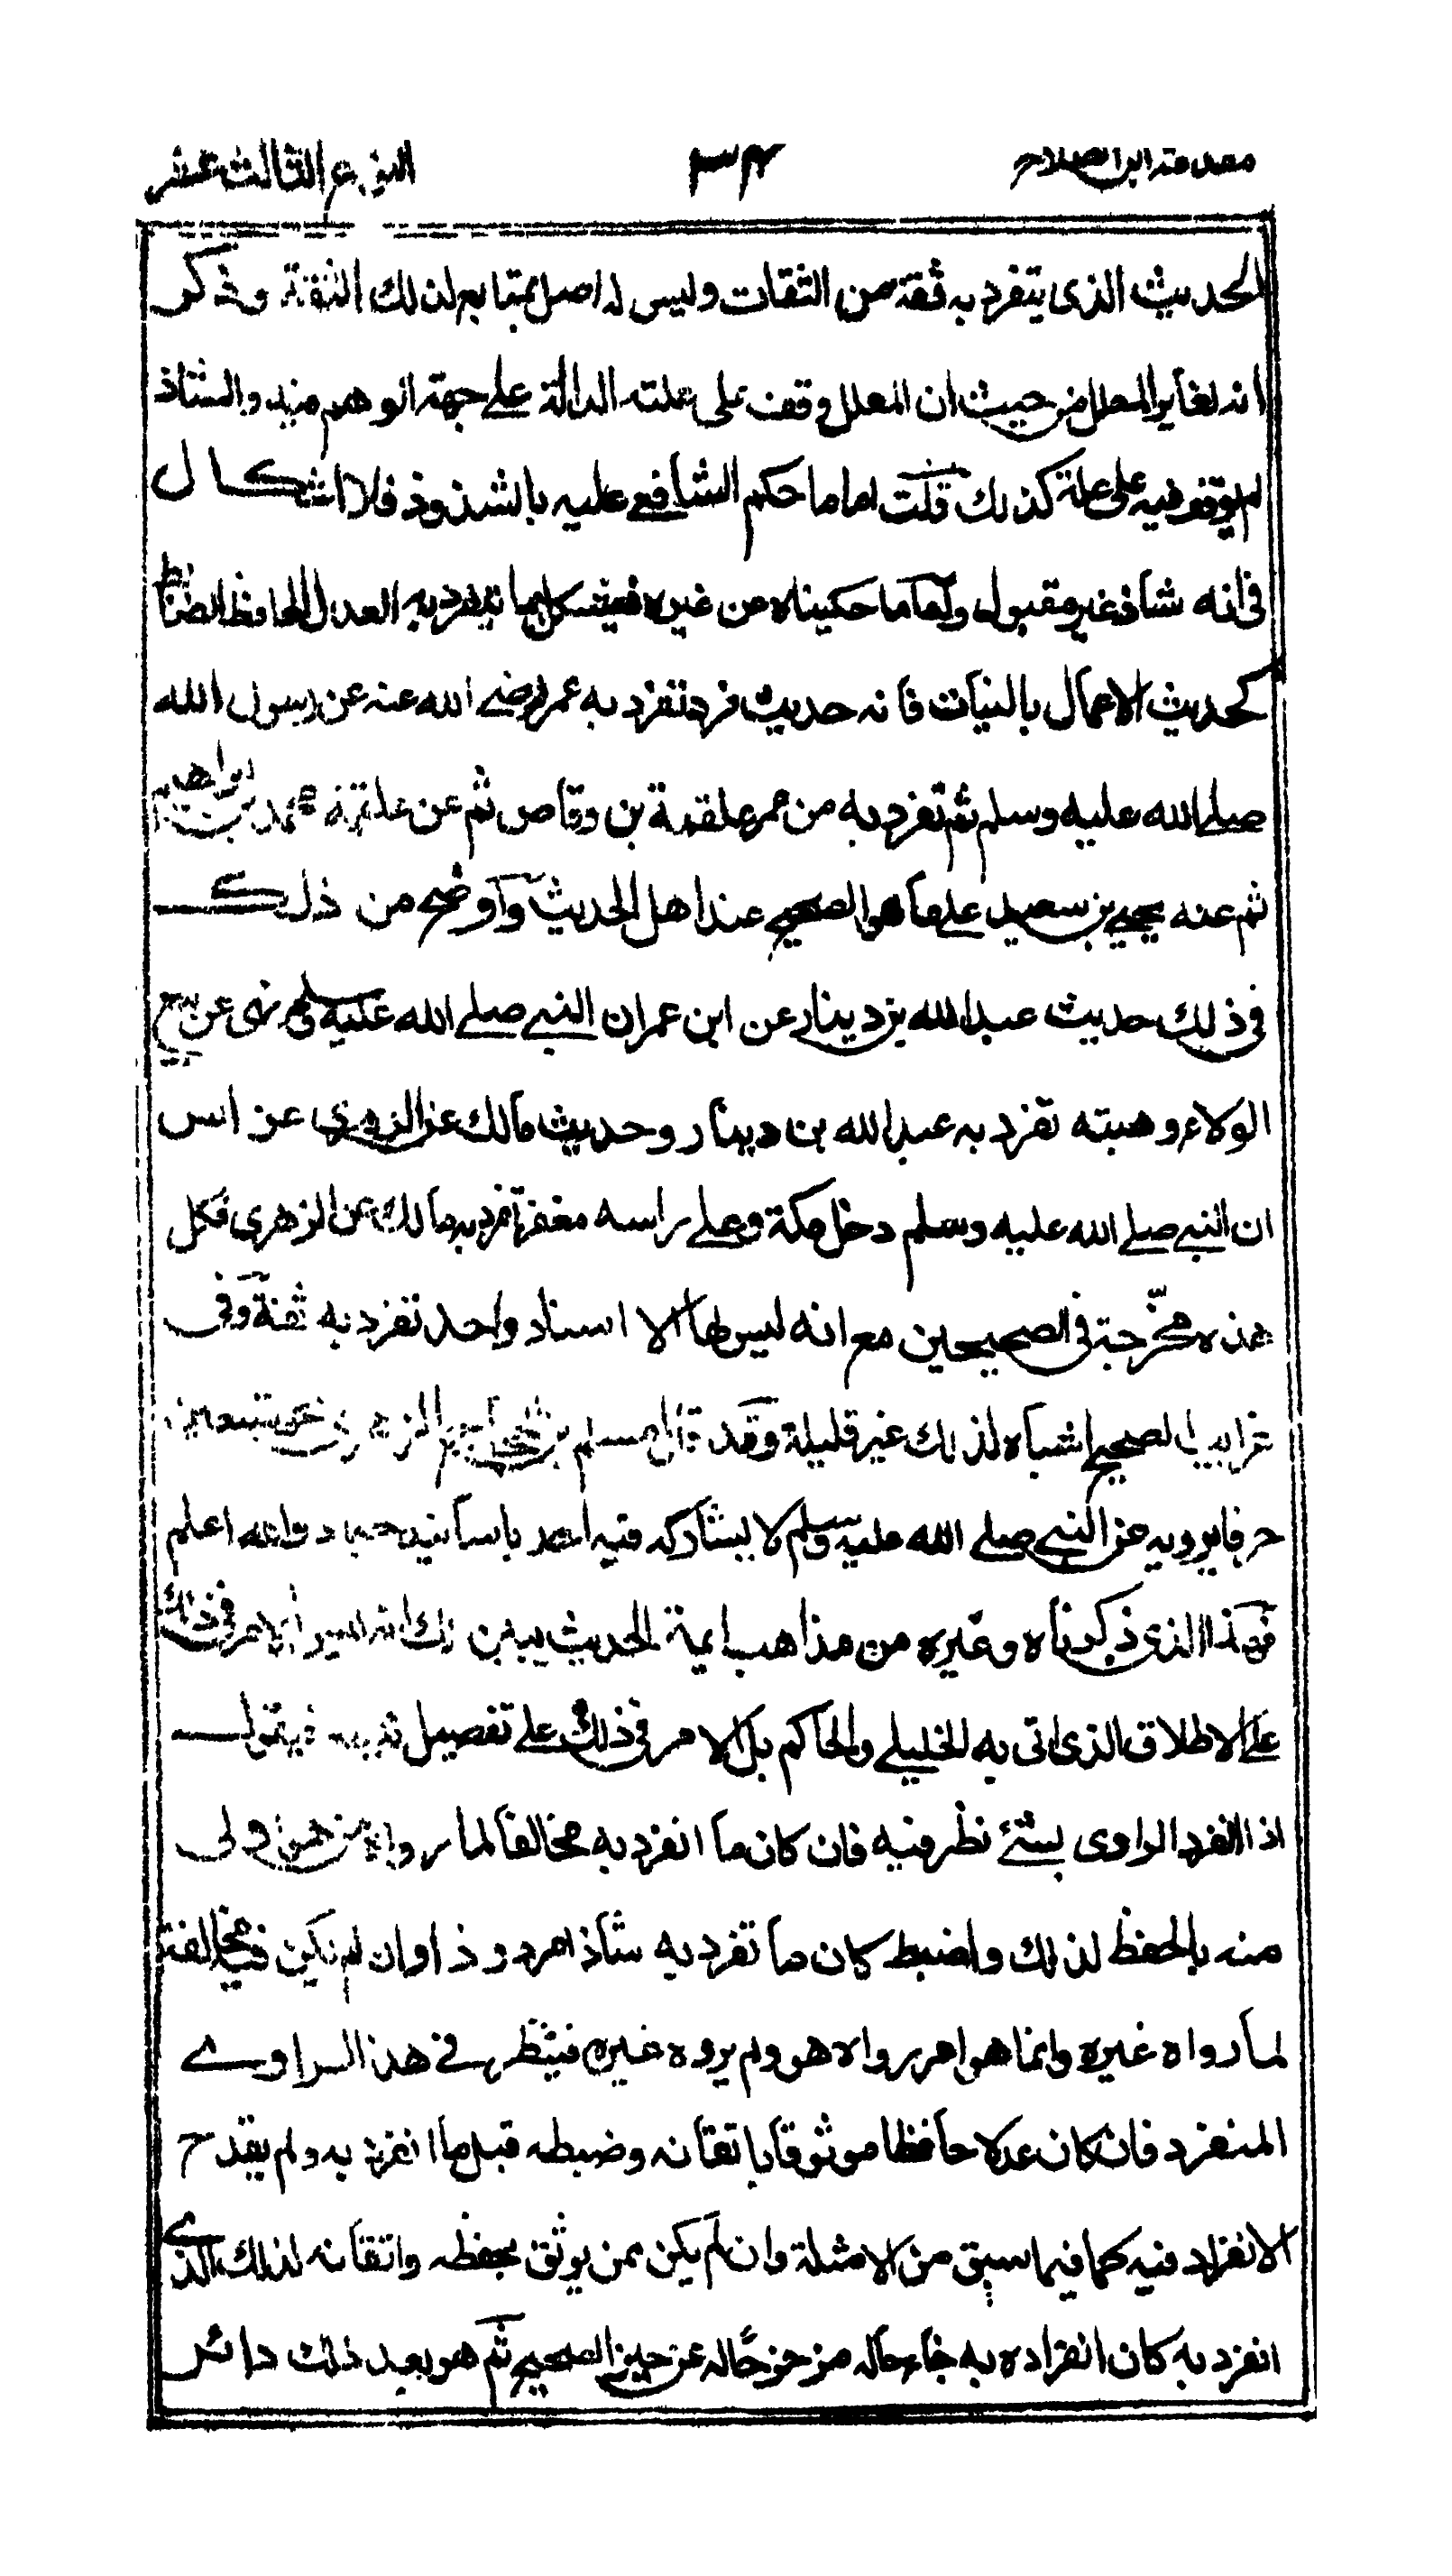 مقدمة ابن الصلاح ٣٤ النوع الثالث عشر
الحديث الذى يتفرد به ثقة من الثقات وليس له اصل بمتابع لذلك الثقة وذكر
انه يغاير المعلل من حيث ان المعلل وقف على علته الدالة على جهة الوهم فيه والشاذ
لم يوقف فيه على علة كذلك قلت اما ما حكم الشافعى عليه بالشذوذ فلا اشكال
فى انه شاذ غير مقبول واما ما حكيناه عن غيره فيشكل بما يتفرد به العدل الحافظ الضابط
كحديث الاعمال بالنيات فانه حديث فرد تفرد به عمر رضى الله عنه عن رسول الله
صلى الله عليه وسلم ثم تفرد به من عمر علقمة بن وقاص ثم عن علقمة محمد بن ابراهيم
ثم عنه يحيى بن سعيد على ما هو الصحيح عند اهل الحديث واوضح من ذلك
فى ذلك حديث عبدالله بن دينار عن ابن عمر ان النبى صلى الله عليه وسلم نهى عن بيع
الولاء وهبته تفرد به عبدالله بن دينار وحديث مالك عن الزهرى عن انس
ان النبى صلى الله عليه وسلم دخل مكة وعلى راسه مغفر تفرد به مالك عن الزهرى فكل
هذه مخرّجة فى الصحيحين مع انه ليس لها الا اسناد واحد تفرد به ثقة وفى
غرايب الصحيح اشباه لذلك غير قليلة وقد قال مسلم بن الحجاج الزهرى نحو تسعين
حرفا يرويه عن النبى صلى الله عليه وسلم لا يشاركه فيه احد باسانيد جياد والله اعلم
فهذا الذى ذكرناه وغيره من مذاهب ايمة الحديث يبين لك انه ليس الامر فى ذلك
على الاطلاق الذى اتى به الخليلى والحاكم بل الامر فى ذلك على تفصيل نبينه فيقول
اذا انفرد الراوى بشئ نظر فيه فان كان ما انفرد به مخالفا لما رواه من هو اولى
منه بالحفظ لذلك واضبط كان ما تفرد به شاذ امردوذا وان لم تكن فيه مخالفة
لما رواه غيره وانما هو امر رواه هو ولم يروه غيره فينظر فى هذا الراوى
المنفرد فان كان عدلا حافظا موثوقا باتقانه وضبطه قبل ما انفرد به ولم يقدح
الانفراد فيه كما فيما سبق من الامثلة وان لم يكن ممن يوثق بحفظه واتقانه لذلك الذى
انفرد به كان انفراده به خارما له مزحزحا له عن حيز الصحيح ثم هو بعد ذلك دائر